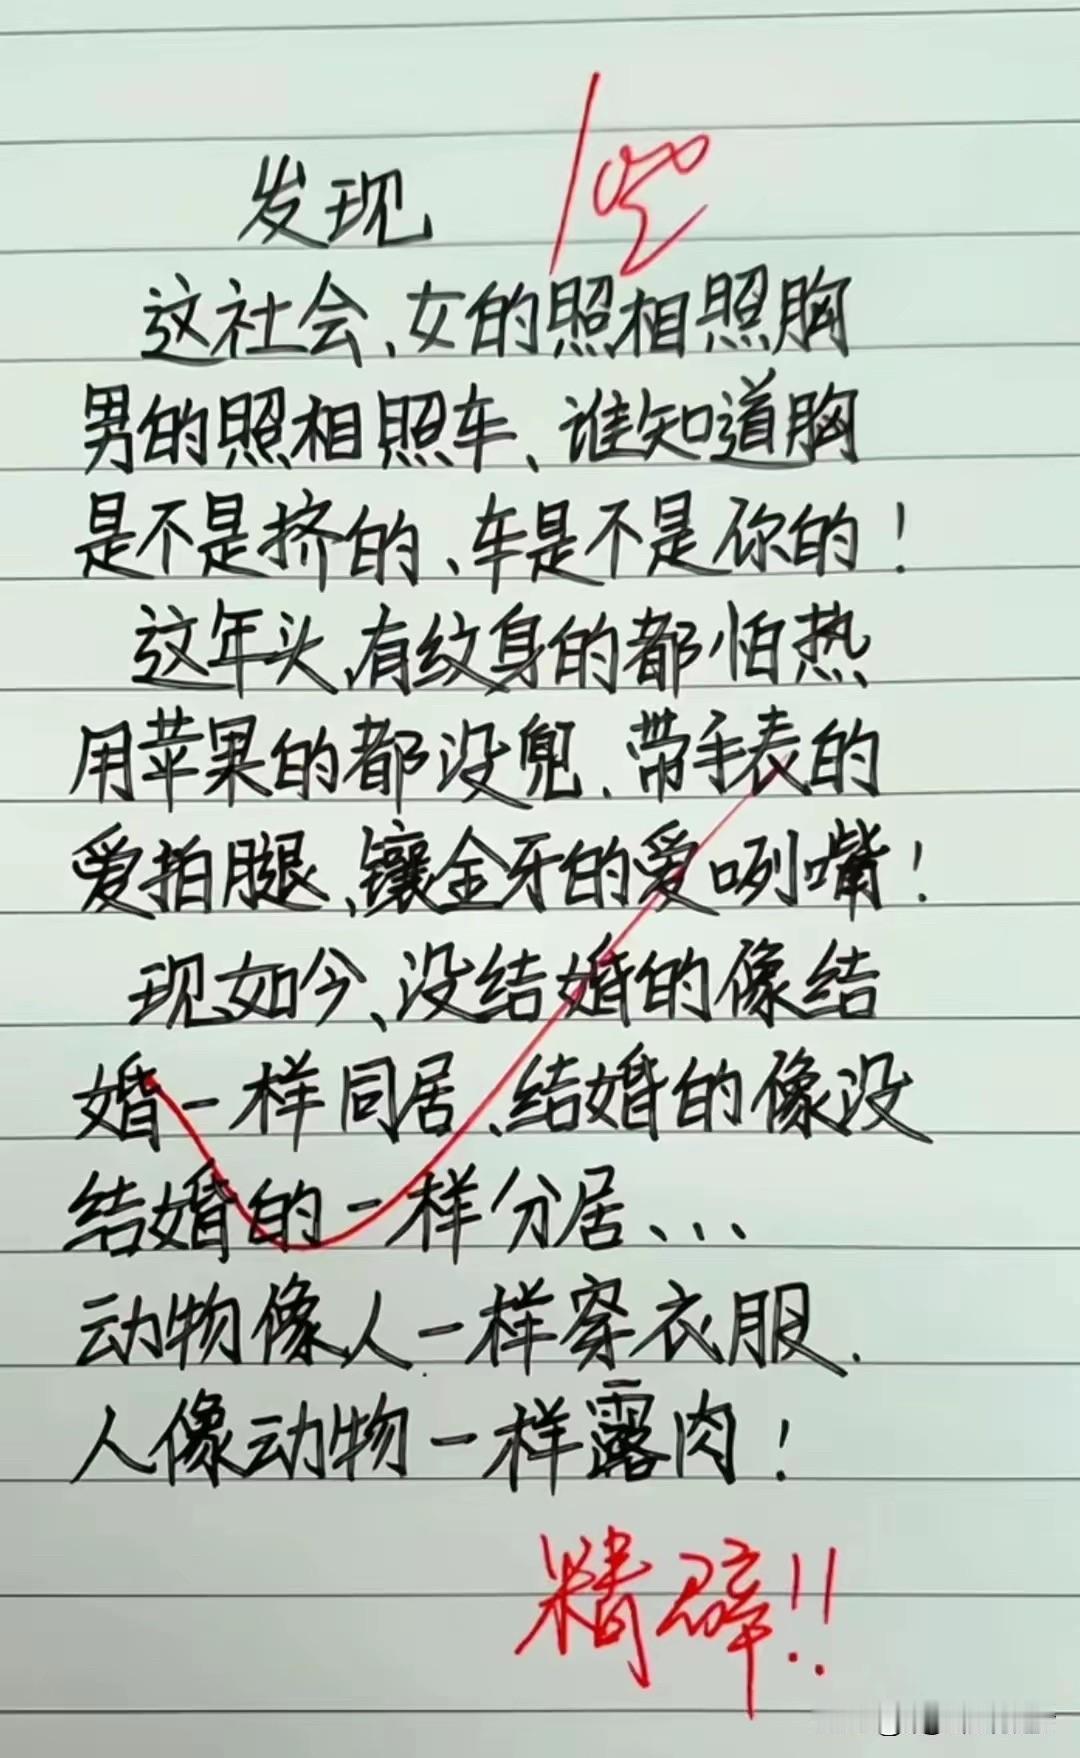 发现
100
这社会、女的照相照胸
男的照相照车、谁知道胸
是不是挤的、车是不是你的！
这年头、有纹身的都怕热
用苹果的都没兜、带手表的
爱拍腿、镶金牙的爱咧嘴！
现如今、没结婚的像结
婚一样同居、结婚的像没
结婚的一样分居、...
动物像人一样穿衣服.
人像动物一样露肉！
精辟!!